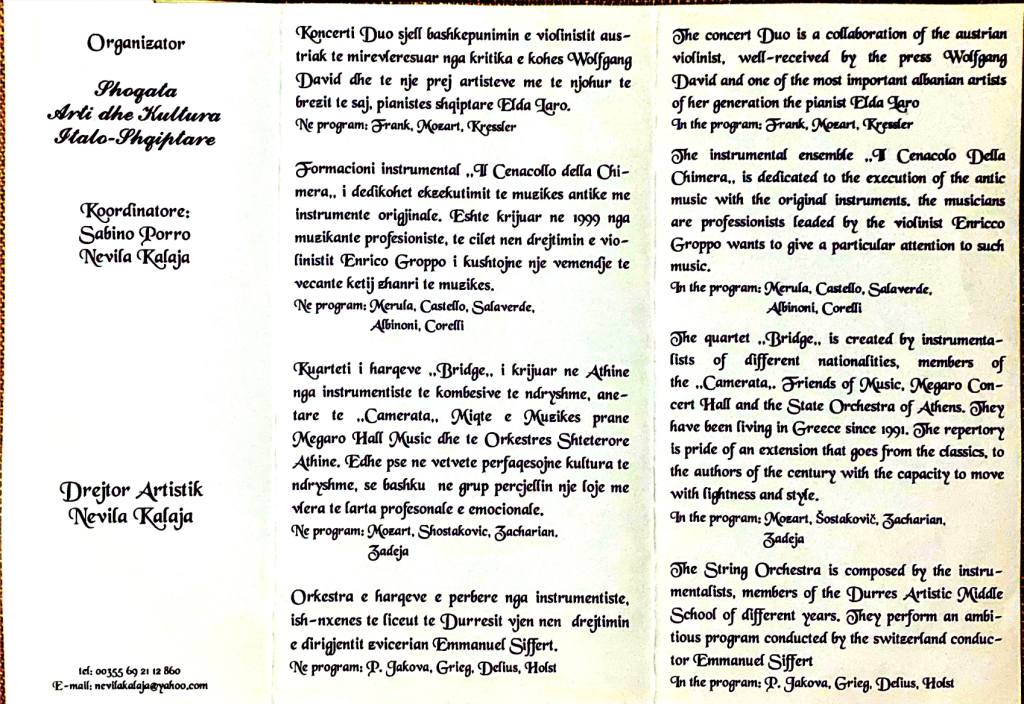 Organizator
Shoqata
Arti dhe Kultura
Italo-Shqiptare
Koordinatore:
Sabino Porro
Nevila Kalaja
Drejtor Artistik
Nevila Kalaja
tel: 00355 69 21 12 860
E-mail: nevilakalaja@yahoo.com
Koncerti Duo sjell bashkepunimin e violinistit aus-
triak te mirevleresuar nga kritika e kohes Wolfgang
David dhe te nje prej artisteve me te njohur te
brezit te saj, pianistes shqiptare Elda Laro.
Ne program: Frank, Mozart, Kressler
Formacioni instrumental ,,Il Cenacollo della Chi-
mera,, i dedikohet ekzekutimit te muzikes antike me
instrumente origjinale. Eshte krijuar ne 1999 nga
muzikante profesioniste, te cilet nen drejtimin e vio-
linistit Enrico Groppo i kushtojne nje vemendje te
vecante ketij zhanri te muzikes.
Ne program: Merula, Castello, Salaverde,
Albinoni, Corelli
Kuarteti i harqeve ,,Bridge,, i krijuar ne Athine
nga instrumentiste te kombesive te ndryshme, ane-
tare te ,,Camerata,, Miqte e Muzikes prane
Megaro Hall Music dhe te Orkestres Shteterore
Athine. Edhe pse ne vetvete perfaqesojne kultura te
ndryshme, se bashku ne grup percjellin nje loje me
vlera te larta profesonale e emocionale.
Ne program: Mozart, Shostakovic, Zacharian,
Zadeja
Orkestra e harqeve e perbere nga instrumentiste,
ish-nxenes te liceut te Durresit vjen nen drejtimin
e dirigjentit zvicerian Emmanuel Siffert.
Ne program: P. Jakova, Grieg, Delius, Holst
The concert Duo is a collaboration of the austrian
violinist, well-received by the press Wolfgang
David and one of the most important albanian artists
of her generation the pianist Elda Laro
In the program: Frank, Mozart, Kressler
The instrumental ensemble ,,Il Cenacolo Della
Chimera,, is dedicated to the execution of the antic
music with the original instruments. the musicians
are professionists leaded by the violinist Enricco
Groppo wants to give a particular attention to such
music.
In the program: Merula, Castello, Salaverde,
Albinoni, Corelli
The quartet ,,Bridge,, is created by instrumenta-
lists of different nationalities, members of
the ,,Camerata,, Friends of Music, Megaro Con-
cert Hall and the State Orchestra of Athens. They
have been living in Greece since 1991. The repertory
is pride of an extension that goes from the classics, to
the authors of the century with the capacity to move
with lightness and style.
In the program: Mozart, Šostakovič, Zacharian,
Zadeja
The String Orchestra is composed by the instru-
mentalists, members of the Durres Artistic Middle
School of different years. They perform an ambi-
tious program conducted by the switzerland conduc-
tor Emmanuel Siffert
In the program: P. Jakova, Grieg, Delius, Holst